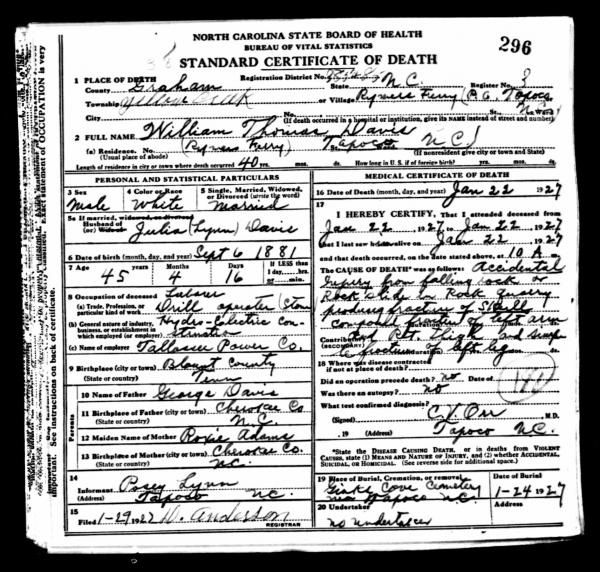 NORTH CAROLINA STATE BOARD OF HEALTH
BUREAU OF VITAL STATISTICS
296
STANDARD CERTIFICATE OF DEATH
1 PLACE OF DEATH Registration District No. Register No. 3
County Graham State N.C.
Township Yellow Creek or Village Rymers Ferry (P.O. Tapoco
City No. St. Ward
(If death occurred in a hospital or institution, give its NAME instead of street and number)
2 FULL NAME William Thomas Davis
(a) Residence. No. (Rymers Ferry) Tapoco N.C.
(Usual place of abode) (If nonresident give city or town and State)
Length of residence in city or town where death occurred 40 yrs. mos. ds. How long in U. S. if of foreign birth? yrs. mos. ds.
PERSONAL AND STATISTICAL PARTICULARS
3 Sex Male
4 Color or Race White
5 Single, Married, Widowed, or Divorced (write the word) Married
5a If married, widowed, or divorced
Husband of (or) Wife of Julia (Lynn) Davis
6 Date of birth (month, day, and year) Sept 6 1881
7 Age 45 Years 4 Months 16 Days If LESS than 1 day, hrs. or min.
8 Occupation of deceased Laborer
(a) Trade, Profession, or particular kind of work Drill operator
(b) General nature of industry, business, or establishment in which employed (or employer) Hydro-Electric Construction
(c) Name of employer Tallassee Power Co.
9 Birthplace (city or town) Blount County
(State or country) Tenn
Parents
10 Name of Father George Davis
11 Birthplace of Father (city or town) Cherokee Co.
(State or country) N.C.
12 Maiden Name of Mother Roxie Adams
13 Birthplace of Mother (city or town) Cherokee Co.
(State or country) N.C.
14
Informant Posey Lynn
(Address) Tapoco N.C.
15
Filed 1-29 1927 D. Anderson
REGISTRAR
MEDICAL CERTIFICATE OF DEATH
16 Date of Death (month, day, and year) Jan 22 1927
17
I HEREBY CERTIFY, That I attended deceased from
Jan 22 1927 to Jan 22 1927
that I last saw h alive on Jan 22 1927
and that death occurred, on the date stated above, at 10 A m.
The CAUSE OF DEATH* was as follows: Accidental
injury from falling rock
Rock slide in Rock Quarry
producing fracture of Skull
Compound fracture of left arm
Contributory Rt. thigh and simp
(SECONDARY)
le fracture of left leg
18 Where was disease contracted
if not at place of death?
Did an operation precede death? no Date of
Was there an autopsy? no
What test confirmed diagnosis?
(Signed) C.V. Orr M.D.
, 19 (Address) Tapoco N.C.
*State the DISEASE CAUSING DEATH, or in deaths from VIOLENT CAUSES, state (1) MEANS AND NATURE OF INJURY, and (2) whether ACCIDENTAL, SUICIDAL, or HOMICIDAL. (See reverse side for additional space.)
19 Place of Burial, Cremation, or removal Cove Cemetery
near Tapoco N.C.
Date of Burial 1-24 1927
20 Undertaker
no undertaker
important. See instructions on back of certificate.
Exact statement of OCCUPATION is very